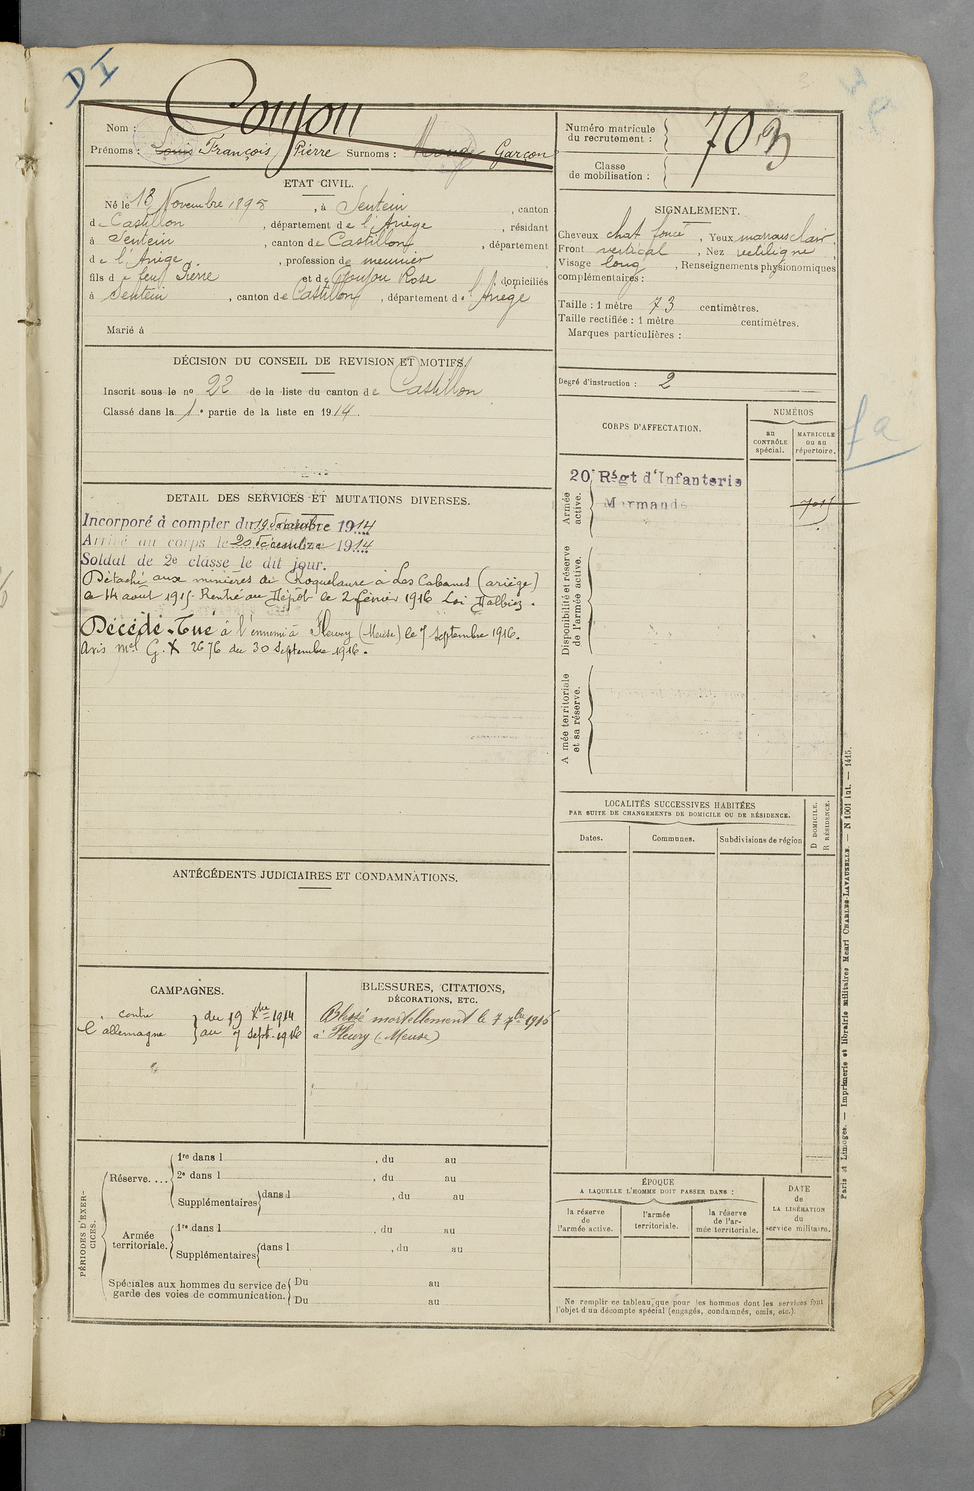 DI
Coujou
Nom :
Prénoms : Louis François Pierre Surnoms : Garçon
Numéro matricule du recrutement : 703
Classe de mobilisation :
ETAT CIVIL.
Né le 18 Novembre 1895, à Sentein, canton
de Castillon, département de l'Ariège, résidant
à Sentein, canton de Castillon, département
de l'Ariège, profession de meunier
fils de feu Pierre et de Coujou Rose, domiciliés
à Sentein, canton de Castillon, département de l'Ariège
Marié à
SIGNALEMENT.
Cheveux chat foncé, Yeux marrons clair
Front vertical, Nez rectiligne
Visage long, Renseignements physionomiques
complémentaires :
Taille : 1 mètre 73 centimètres.
Taille rectifiée : 1 mètre centimètres.
Marques particulières :
Degré d'instruction : 2
DÉCISION DU CONSEIL DE REVISION ET MOTIFS.
Inscrit sous le no 22 de la liste du canton de Castillon
Classé dans la 1e partie de la liste en 1914.
CORPS D'AFFECTATION.
NUMÉROS
au CONTRÔLE spécial.
MATRICULE ou au répertoire.
Armée active.
20e Régt d'Infanterie
Marmande
Disponibilité et réserve de l'armée active.
Armée territoriale et sa réserve.
fa
DETAIL DES SERVICES ET MUTATIONS DIVERSES.
Incorporé à compter du 19 Décembre 1914
Arrivé au corps le 20 Décembre 1914
Soldat de 2e classe le dit jour.
Détaché aux minières de Roquelaure à Les Cabanes (ariège)
le 14 août 1915. Rentré au Dépôt le 2 février 1916 Loi Dalbiez.
Décédé - Tué à l'ennemi à Fleury (Meuse) le 7 septembre 1916.
Avis mel G. X 2676 du 30 Septembre 1916.
LOCALITÉS SUCCESSIVES HABITÉES
PAR SUITE DE CHANGEMENTS DE DOMICILE OU DE RÉSIDENCE.
Dates.
Communes.
Subdivisions de région
D DOMICILE.
R RÉSIDENCE.
ANTÉCÉDENTS JUDICIAIRES ET CONDAMNATIONS.
CAMPAGNES.
contre l'allemagne } du 19 Xbre 1914
au 7 sept. 1916
BLESSURES, CITATIONS,
DÉCORATIONS, ETC.
Blessé mortellement le 7 7bre 1916
à Fleury (Meuse)
PÉRIODES D'EXERCICES.
Réserve....
1re dans l , du au
2e dans l , du au
Supplémentaires dans l , du au
Armée territoriale.
1re dans l , du au
Supplémentaires dans l , du au
Spéciales aux hommes du service de garde des voies de communication.
Du au
Du au
ÉPOQUE
A LAQUELLE L'HOMME DOIT PASSER DANS :
la réserve de l'armée active.
l'armée territoriale.
la réserve de l'armée territoriale.
DATE de LA LIBÉRATION du service militaire.
Ne remplir ce tableau que pour les hommes dont les services font
l'objet d'un décompte spécial (engagés, condamnés, omis, etc.).
Paris et Limoges. — Imprimerie et librairie militaires Henri CHARLES-LAVAUZELLE. — N 1001 Int. — 1415.